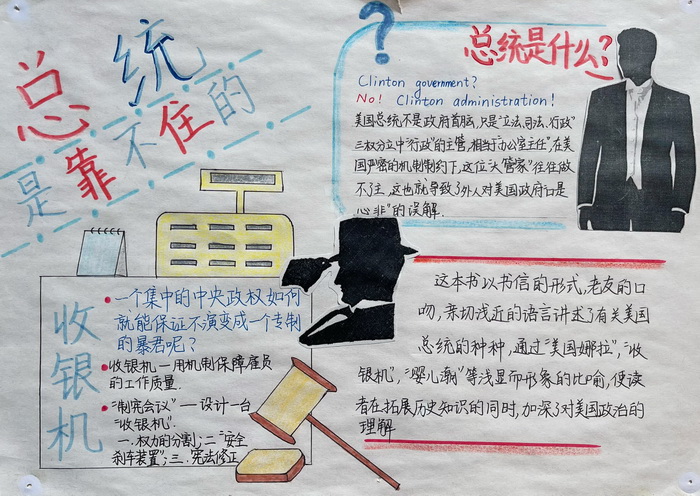 总统
是靠不住的
?
总统是什么?
Clinton government?
No! Clinton administration!
美国总统不是政府首脑,只是"立法、司法、行政"
三权分立中"行政"的主管,相当于办公室主任",在美
国严密的机制制约下,这位"大管家"往往做
不了主,这也就导致了外人对美国政府"口是
心非"的误解.
收银机
一个集中的中央政权如何
就能保证不演变成一个专制
的暴君呢?
收银机—用机制保障雇员
的工作质量.
"制宪会议"—设计一台
"收银机".
一.权力的分割;二"安全
刹车装置";三.宪法修正
这本书以书信的形式,老友的口
吻,亲切浅近的语言讲述了有关美国
总统的种种,通过"美国娜拉","收
银机","婴儿潮"等浅显而形象的比喻,使读
者在拓展历史知识的同时,加深了对美国政治的
理解